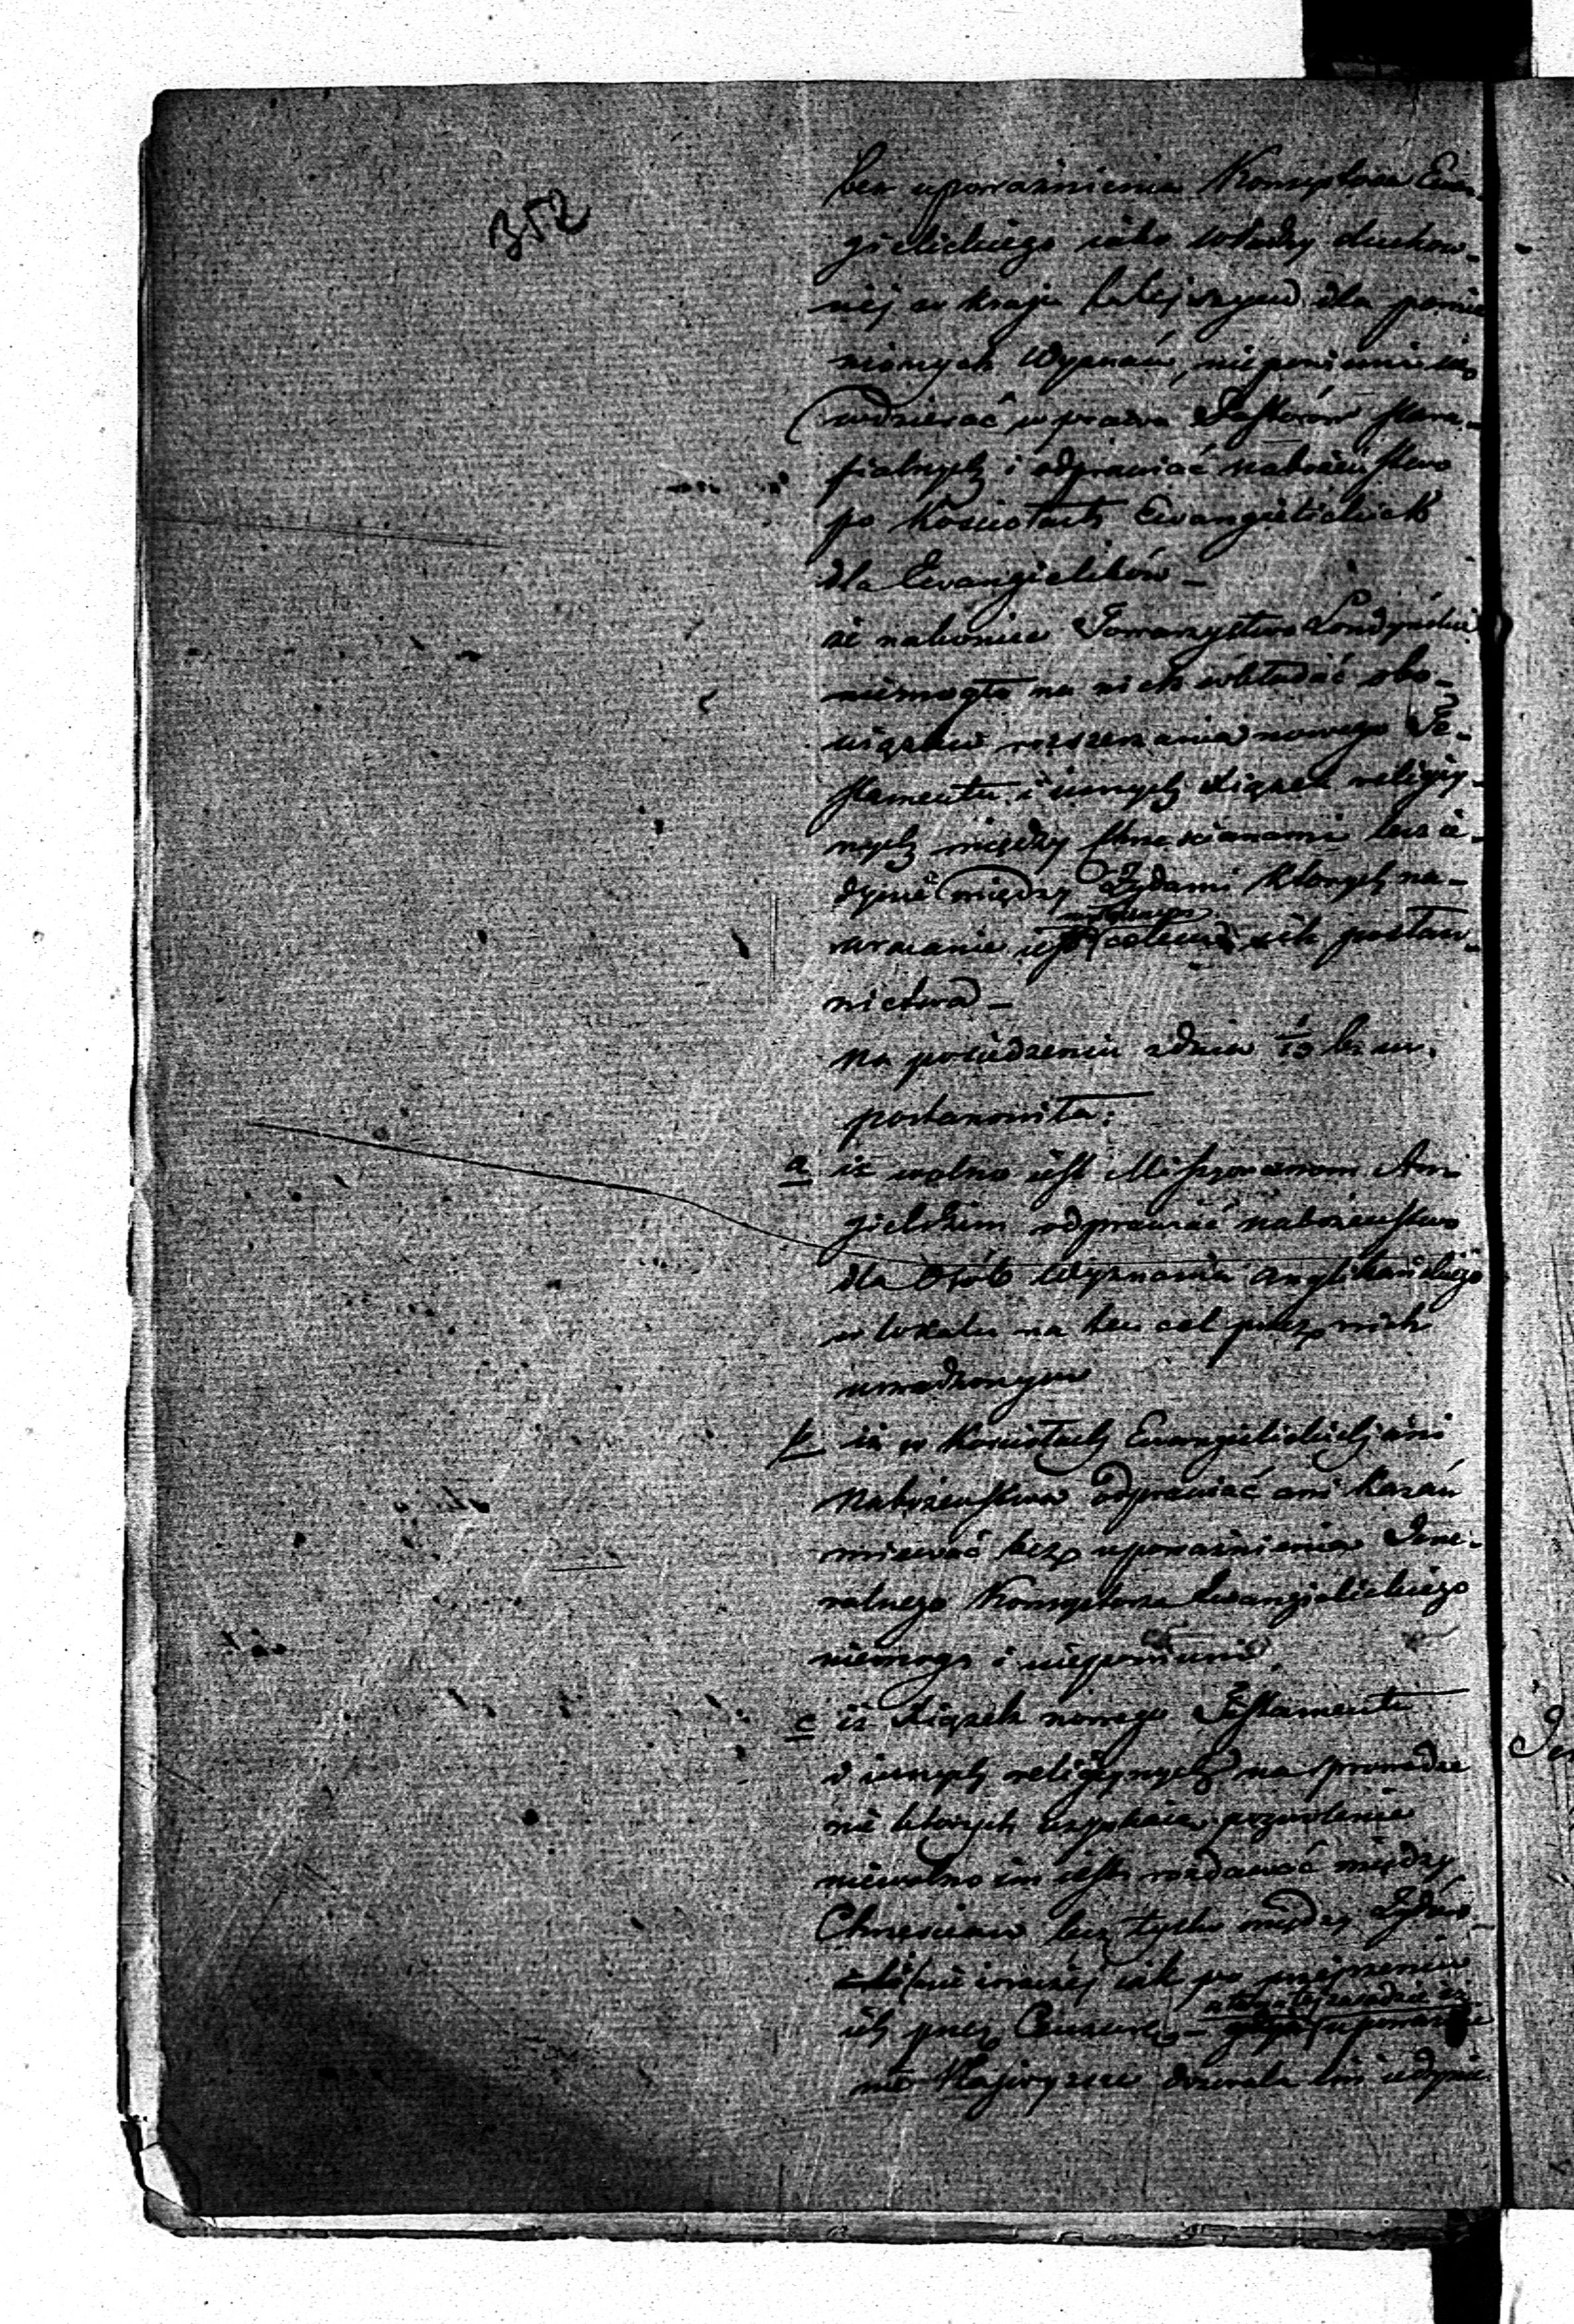 352
bez upoważnienia Konsystorza Ewan-
gielickiego iako Władzy duchow-
néj w kraju tutejszym dla pomie
nionych Wyznań, niepowinni się
wdzierać w prawa Pastorów Para-
fialnych i odprawiać nabożeństwo
po Kościołach Ewangielickich
dla Ewangielików –
że nakoniec Towarzystwo Londyńskie
niemogło na nich wkładać obo-
wiązku rozszerzania nowego Te-
stamentu i innych książek religij-
nych między Chrześcianami lecz ie-
dynie między Żydami których na-
wracanie iest celem ich posłan-
nictwa –
na posiedzeniu z dnia 1/13 b. m.
postanowiła:
a iż wolno iest Missyonarzom An-
gielskim odprawiać nabożeństwo
dla Osób Wyznania Anglikańskiego
w lokalu na ten cel przez nich
urządzonym
b iż w Kościołach Ewangielickich ani
Nabożeństwa odprawiać ani kazań
miewać bez upoważnienia Jene-
ralnego Konsystorza Ewangielickiego
niemogą i niepowinni,
c iż Książek nowego Testamentu
i innych religijnych na sprowadze
nie których uzyskają pozwolenie
niewolno im iest rozdawać między
Chrześcian lecz tylko między Żydów
i nie inaczéj iak po przejrzeniu
ich przez Cenzurę – upoważnie
nie Najwyższe dozwala im iedynie